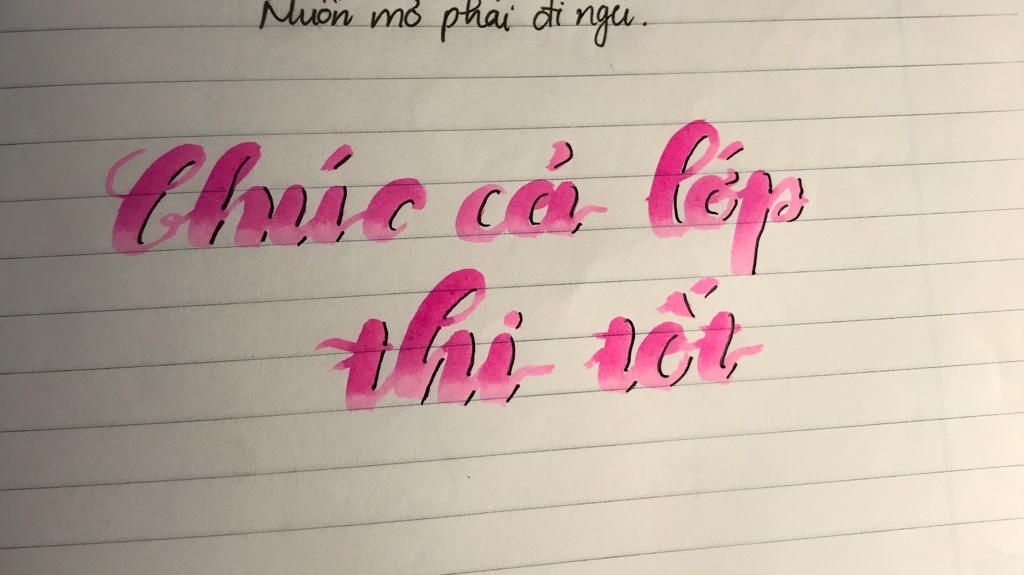 Muốn mơ phải đi ngủ.
Chúc cả lớp
thi tốt